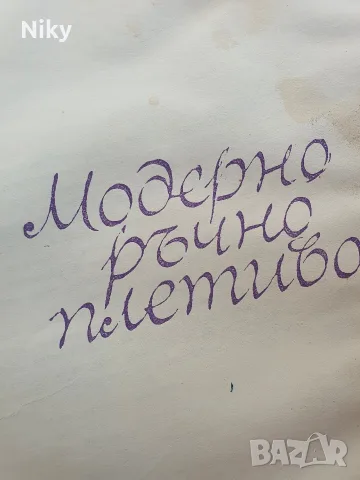 Niky
Модерно
ръчно
плетиво
BAZAR